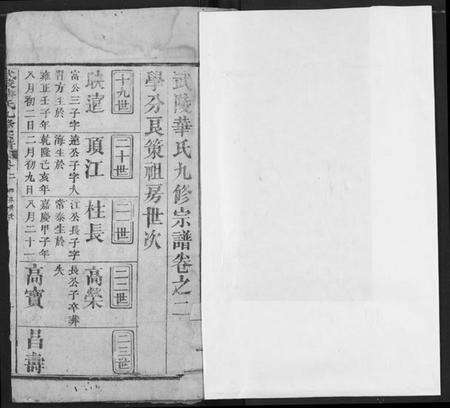 武陵華氏九修宗譜卷之二
學分良策祖房世次
十九世
二十世
二一世
二二世
二三世
映遠
項江
柱長
高榮
富公三子字
對方生於
雍正壬子年
八月初二日
遠公子字大
海生於
乾隆己亥年
二月初九日
江公長子字
常泰生於
嘉慶甲子年
八月二十一
長公子卒葬
失
高寶
呂壽